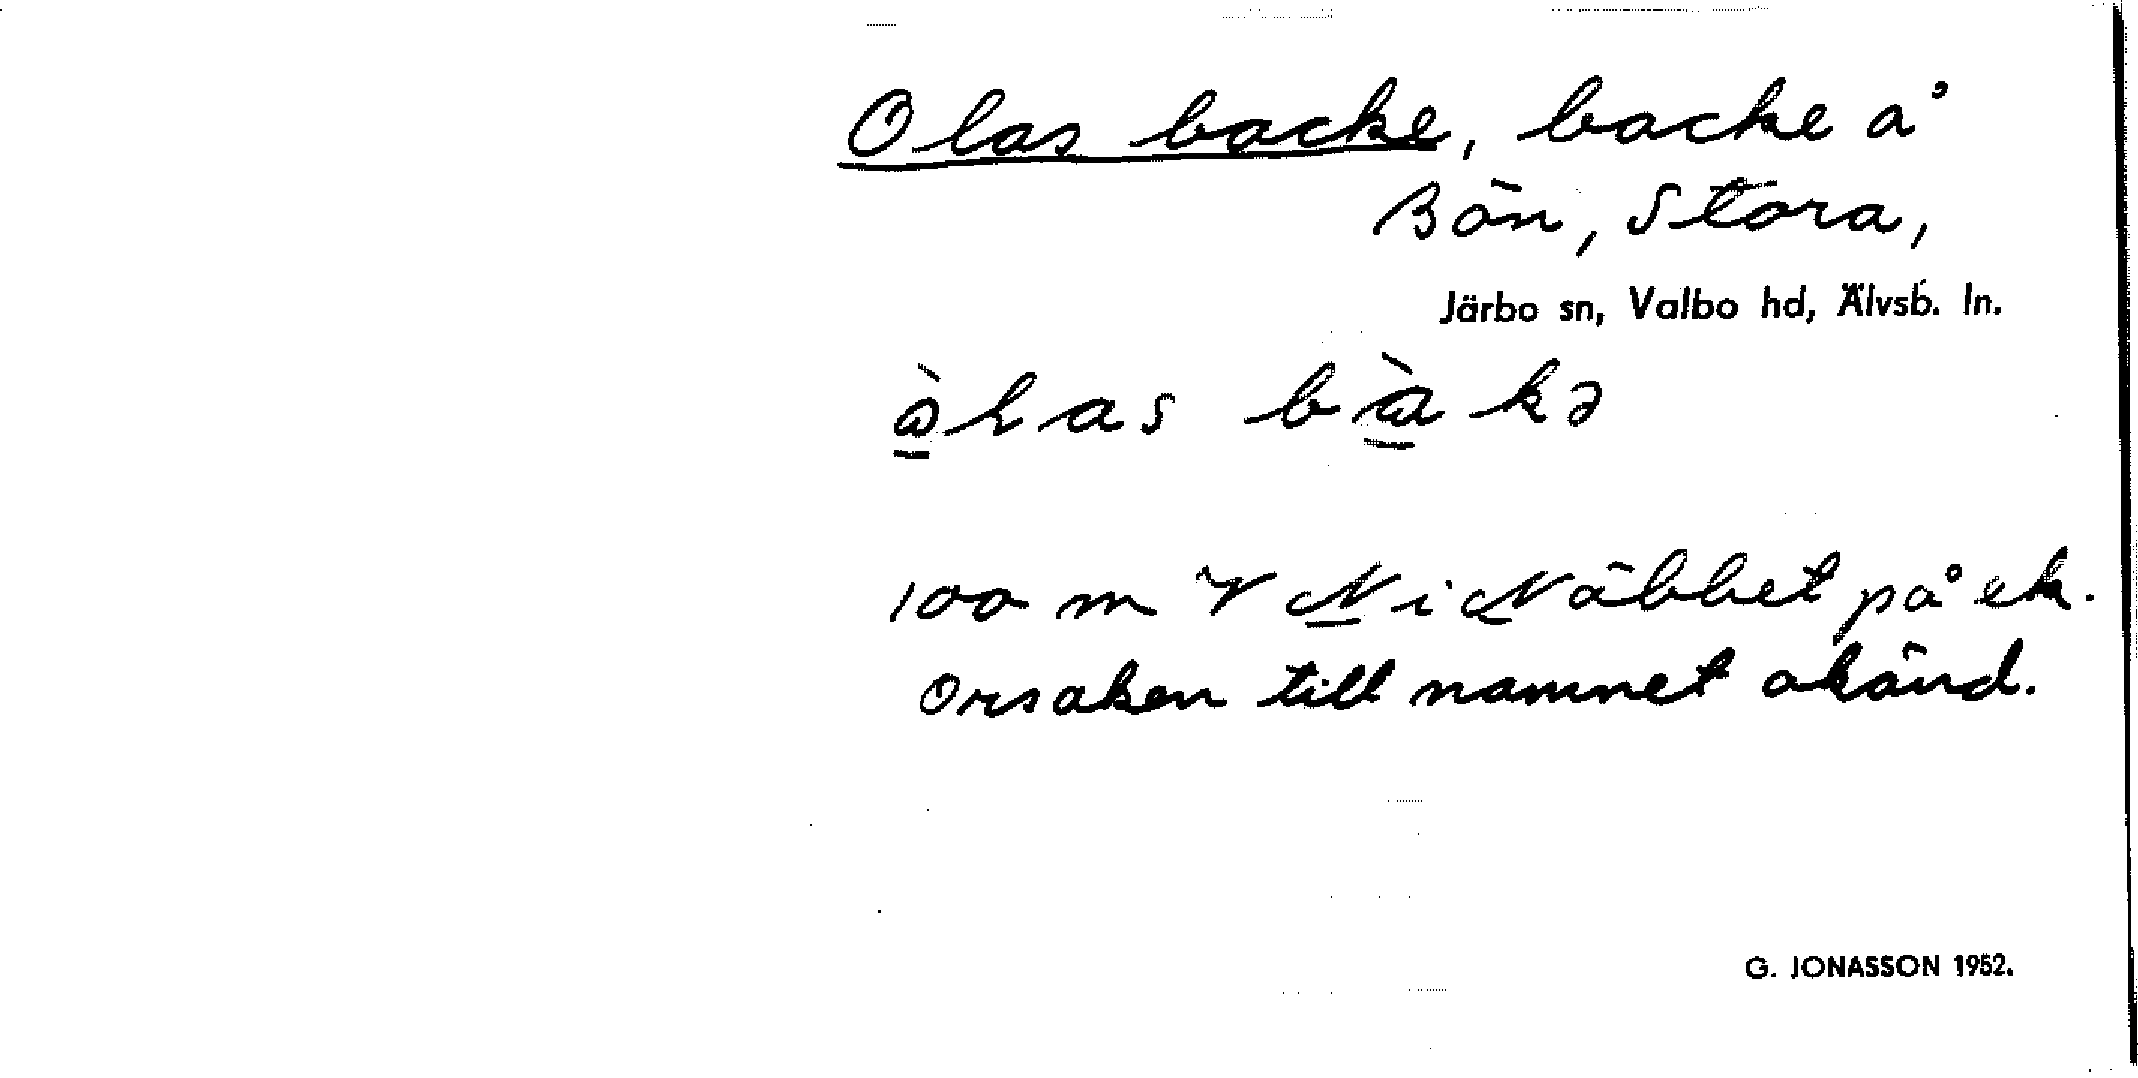 Olas backe, backe å
Bön, Stora,
Järbo sn, Valbo hd, Älvsb. ln.
bàkə
100 m V N i Näbbet på ek.
Orsaken till namnet okänd.
G. JONASSON 1952.